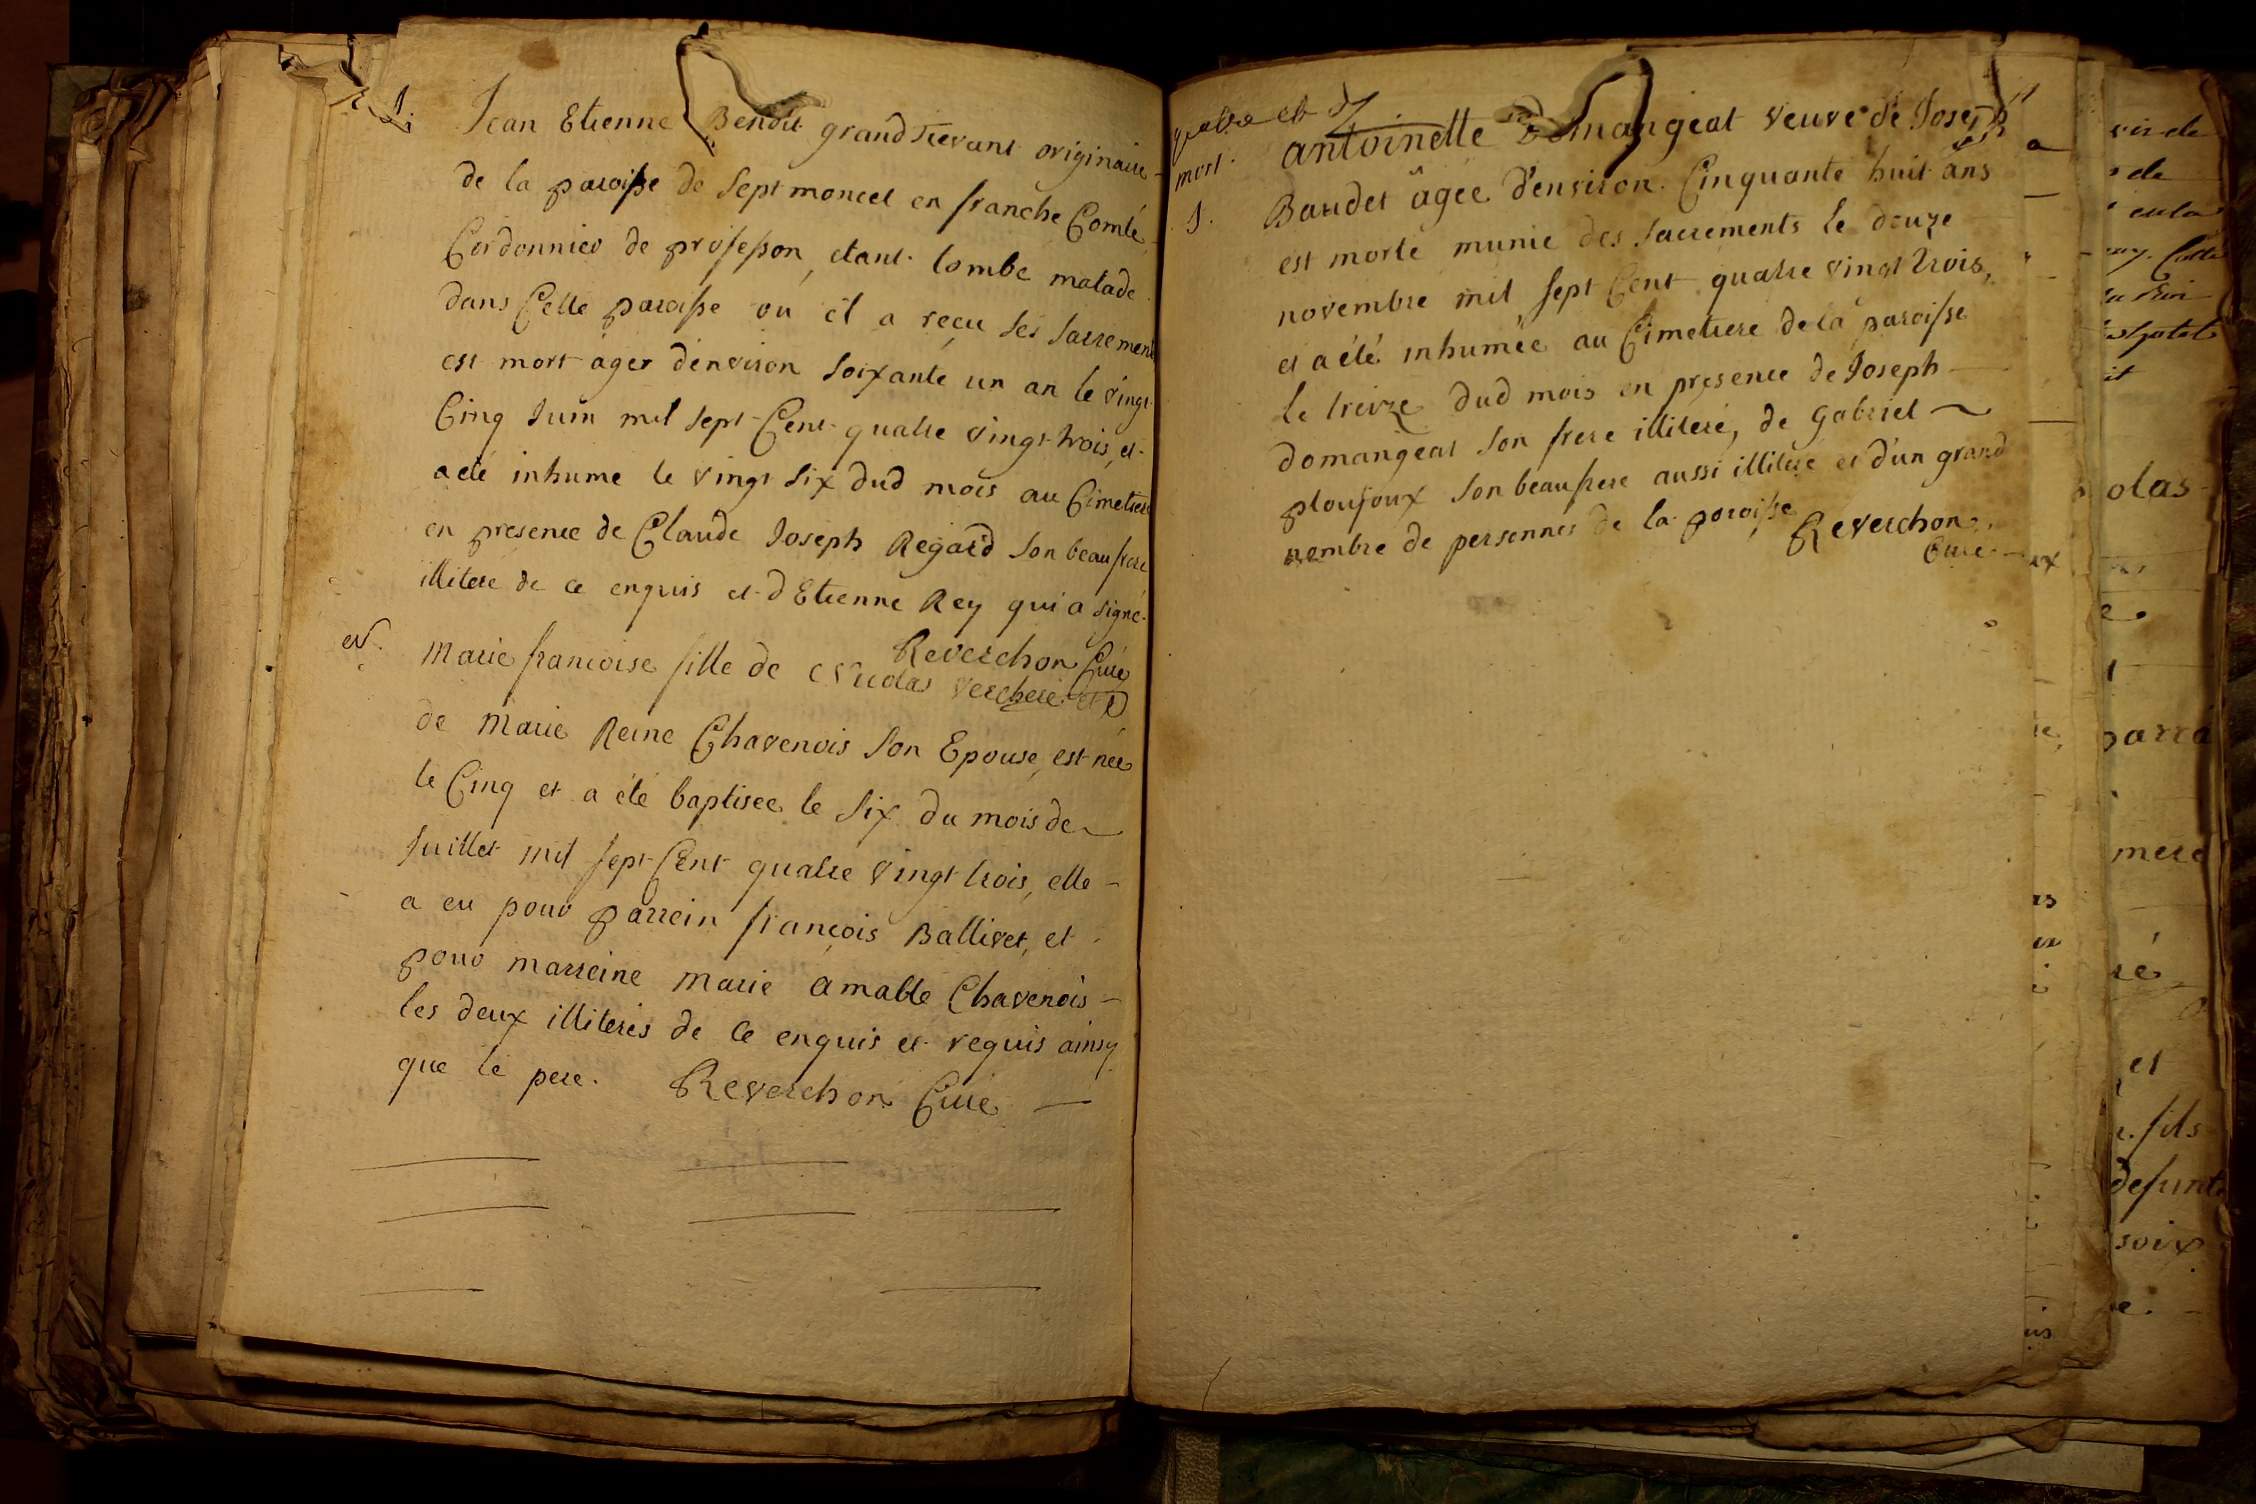 1.
Jean Etienne Benoit grand Tievant originaire
de la paroisse de Septmoncel en franche Comté
Cordonnier de profession, etant tombé malade
dans Cette paroisse où il a reçu les sacrements
est mort âger d'environ soixante un an le vingt
Cinq Juin mil sept Cent quatre vingt trois, et
a eté inhumé le vingt six dud mois au Cimetiere
en presence de Claude Joseph Regard son beaufrere
illiteré de ce enquis et d'Etienne Rey qui a signé.
Reverchon Curé
N.
Marie francoise fille de Nicolas verchere et
de Marie Reine Chavenois son Epouse, est née
le Cinq et a été baptisée le six du mois de
Juillet mil sept Cent quatre vingt trois, elle
a eu pour parrein françois Ballivet, et
pour marreine Marie amable Chavenois
les deux illiterés de ce enquis et requis ainsy
que le pere. Reverchon Curé
quatre et
mort.
1.
antoinette Domangeat veuve de Joseph
Baudet âgée d'environ Cinquante huit ans
est morte munie des sacrements le douze
novembre mil sept Cent quatre vingt trois,
et a été inhumée au Cimetiere de la paroisse
le treize dud mois en presence de Joseph
domangeat son frere illiteré, de Gabriel
ploujoux son beaufrere aussi illiteré et d'un grand
nombre de personnes de la paroisse
Reverchon
Curé
olas
parra
mere
et
fils
defunt
soix